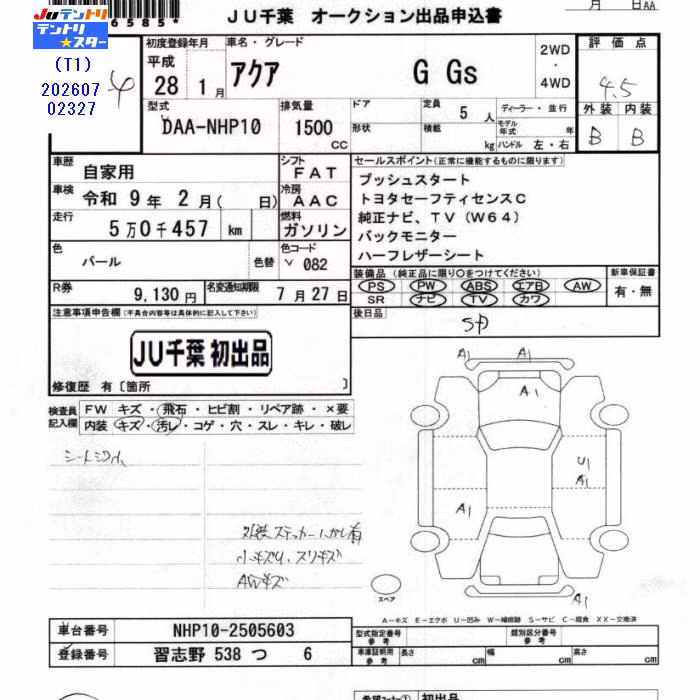 6585
JU千葉 オークション出品申込書
月 日AA
JUテントリ
テントリ★スター
(T1)
202607
02327
4
初度登録年月
平成
28 1月
車名・グレード
アクア G Gs
2WD
・
4WD
評価点
4.5
外装 内装
B B
型式
DAA-NHP10
排気量
1500
CC
ドア
形状
定員
5 人
積載
kg
ディーラー・並行
モデル年式 年
ハンドル 左・右
車歴
自家用
車検
令和 9年 2月( 日)
走行
5万0千457 km
シフト
FAT
冷房
AAC
燃料
ガソリン
セールスポイント(正常に機能するものに限ります)
プッシュスタート
トヨタセーフティセンスC
純正ナビ、TV(W64)
バックモニター
ハーフレザーシート
色
パール
色替
色コード
082
R券
9,130円
名変通知期限
7月27日
装備品(純正品に限り○をつけてください)
PS PW ABS エアB AW
SR ナビ TV カワ
新車保証書
有・無
後日品
注意事項申告欄(不具合内容等は具体的に記入して下さい)
JU千葉 初出品
修復歴 有〔箇所 〕
検査員
記入欄
FW キズ・飛石・ヒビ割・リペア跡・×要
内装 キズ・汚レ・コゲ・穴・スレ・キレ・破レ
外装ステッカーはがし有
小キズ、スリキズ
AWキズ
A1 A1
A1
U1
A1
A1
A1
スペア
A−キズ E−エクボ U−凹み W−補修跡 S−サビ C−腐食 XX−交換済
車台番号 NHP10-2505603
登録番号 習志野 538 つ 6
型式指定番号
参考
類別区分番号
参考
車庫証明用
参考
長さ cm 幅 cm 高さ cm
希望コーナー① 初出品